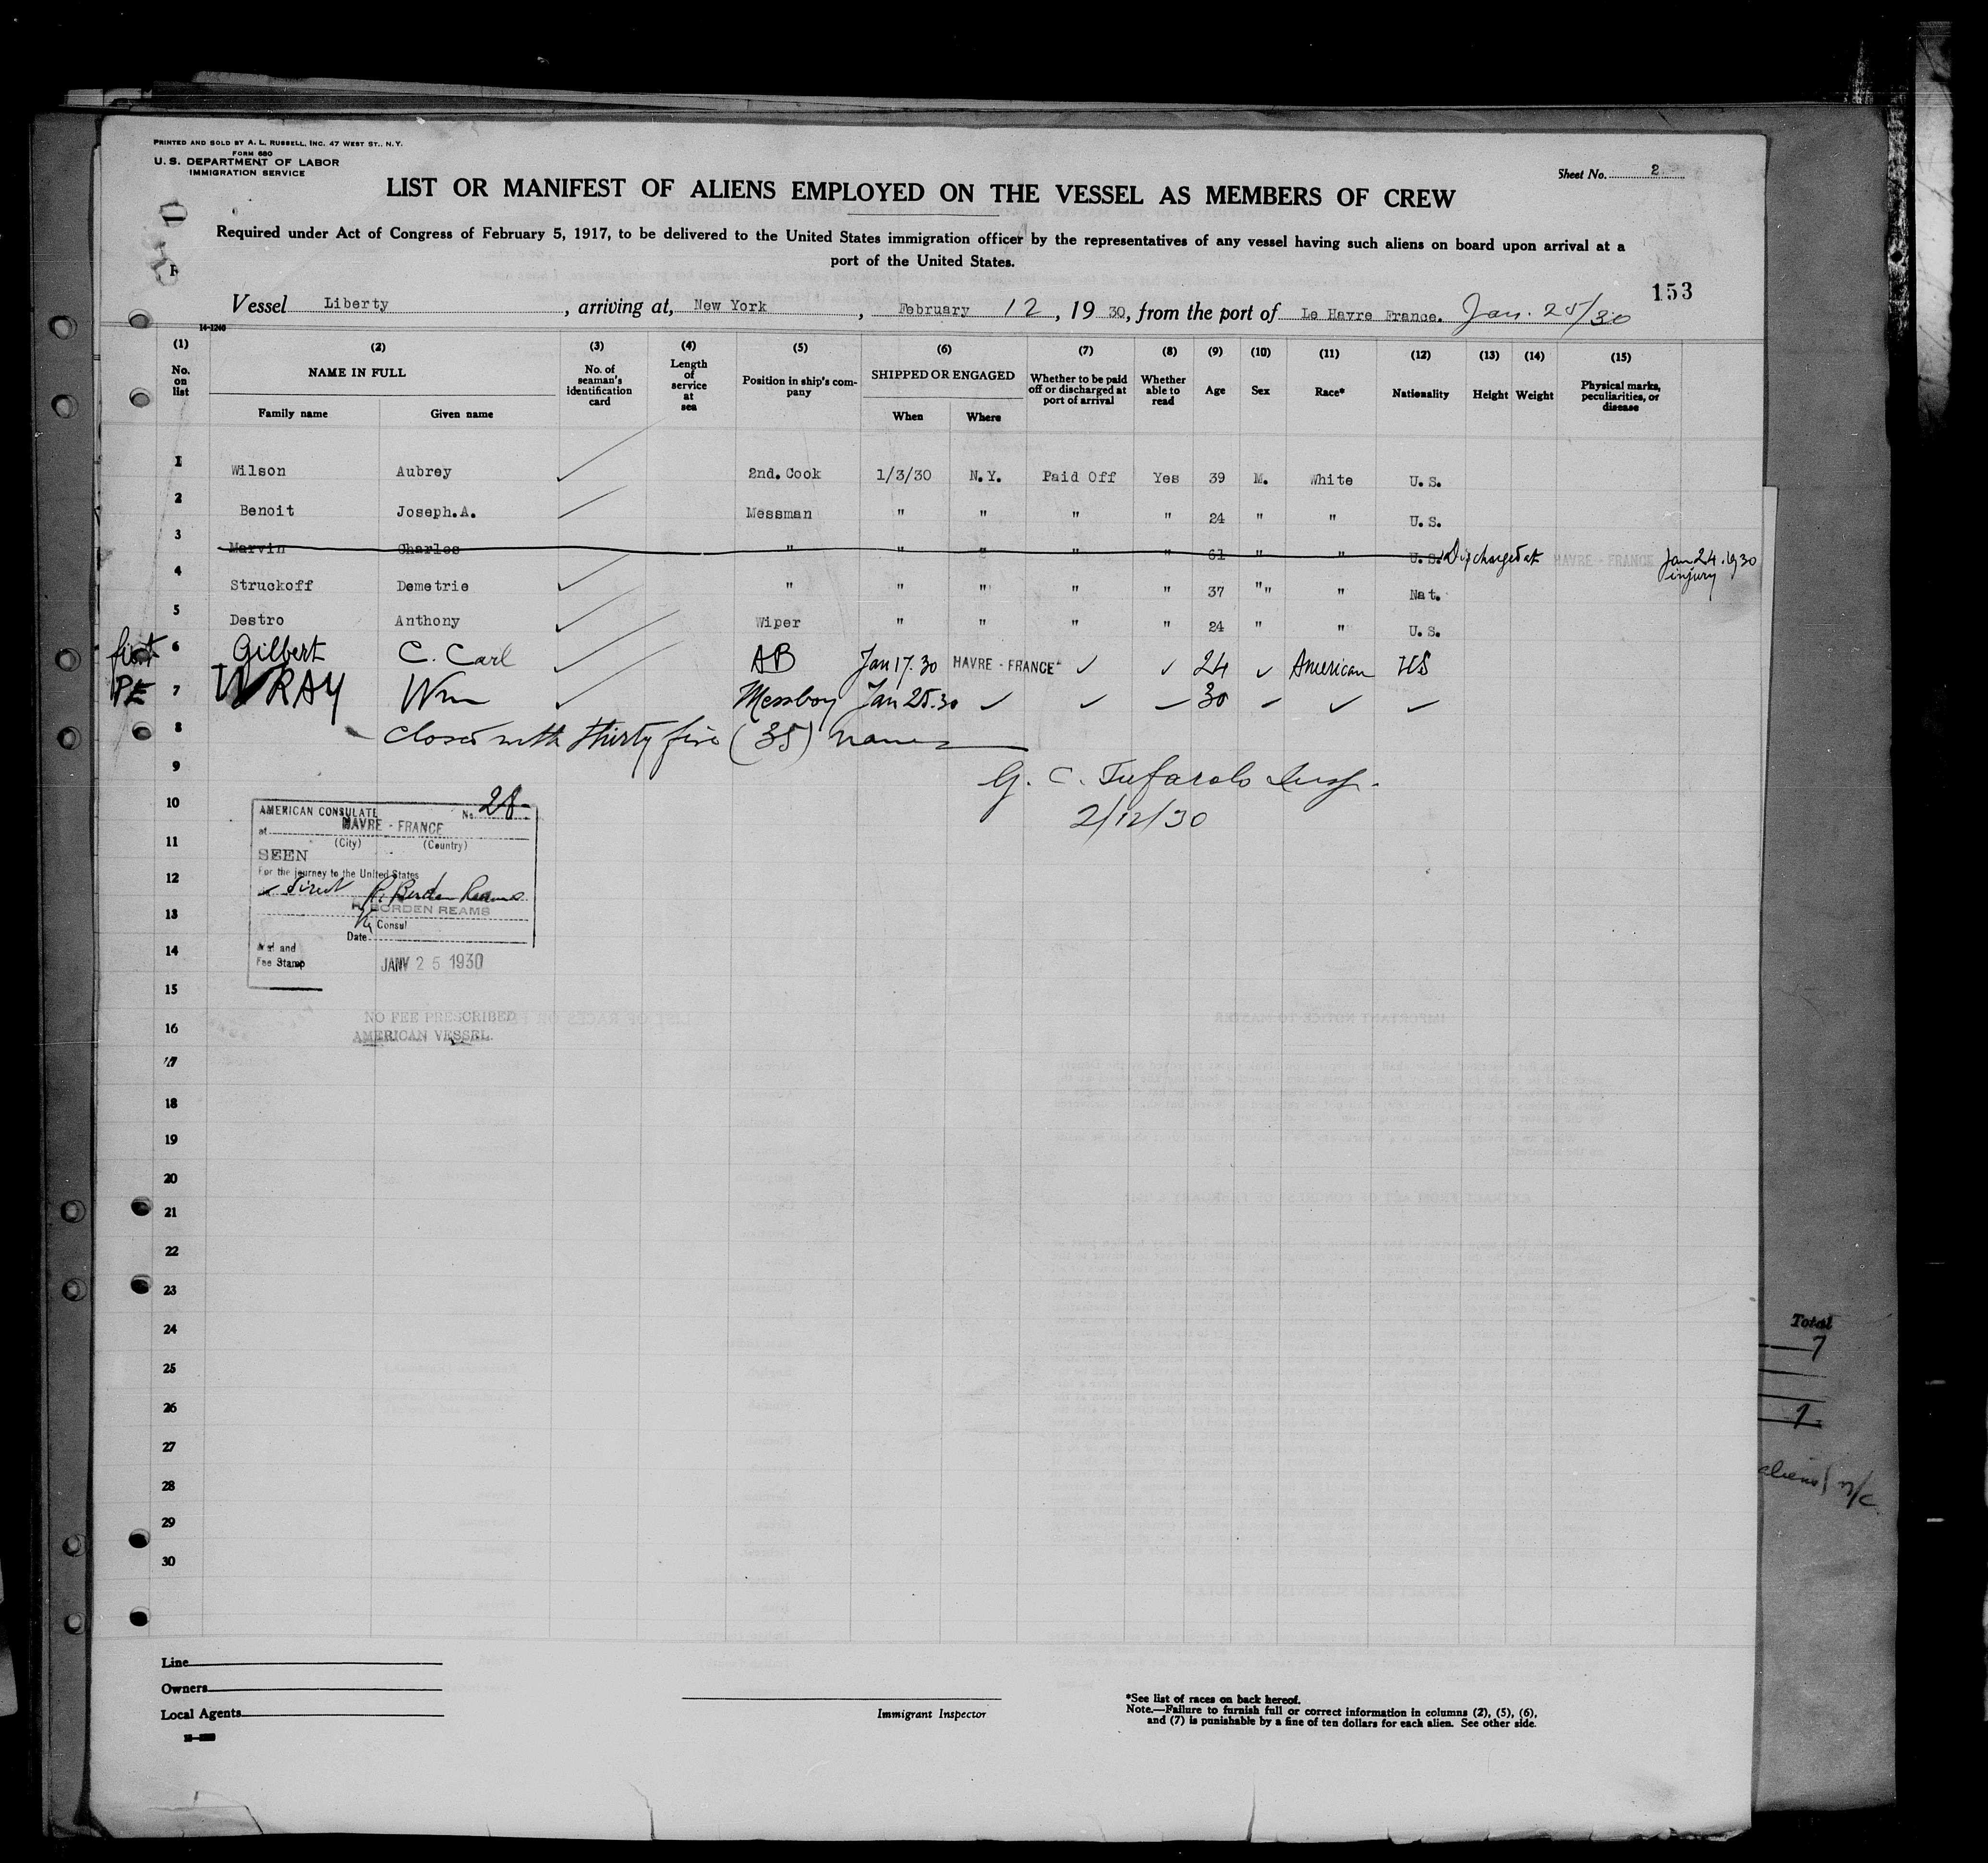 PRINTED AND SOLD BY A. L. RUSSELL, INC. 47 WEST ST., N.Y.
FORM 680
U. S. DEPARTMENT OF LABOR
IMMIGRATION SERVICE
Sheet No. 2
LIST OR MANIFEST OF ALIENS EMPLOYED ON THE VESSEL AS MEMBERS OF CREW
Required under Act of Congress of February 5, 1917, to be delivered to the United States immigration officer by the representatives of any vessel having such aliens on board upon arrival at a
port of the United States.
153
Vessel Liberty, arriving at, New York, February 12, 1930, from the port of Le Havre France. Jan. 25/30
14-1240
(1) (2) (3) (4) (5) (6) (7) (8) (9) (10) (11) (12) (13) (14) (15)
No. on list NAME IN FULL Family name Given name No. of seaman's identification card Length of service at sea Position in ship's company SHIPPED OR ENGAGED When Where Whether to be paid off or discharged at port of arrival Whether able to read Age Sex Race* Nationality Height Weight Physical marks, peculiarities, or disease
1 Wilson Aubrey 2nd. Cook 1/3/30 N.Y. Paid Off Yes 39 M. White U.S.
2 Benoit Joseph.A. Messman " " " " 24 " " U.S.
3 Marvin Charles " " " " " 61 " " U.S. Discharged at HAVRE - FRANCE Jan 24.1930 injury
4 Struckoff Demetrie " " " " " 37 "" " Nat.
5 Destro Anthony Wiper " " " " 24 " " U.S.
first 6 Gilbert C. Carl AB Jan 17.30 HAVRE - FRANCE ✓ ✓ 24 ✓ American US
7 WRAY Wm Messboy Jan 25.30 ✓ ✓ ✓ 30 ✓ ✓ ✓
8 closed with thirty five (35) names
9 G. C. Tufarolo Insp.
10 2/12/30
11
12
13
14
15
16
17
18
19
20
21
22
23
24
25
26
27
28
29
30
AMERICAN CONSULATE No. 28
at HAVRE - FRANCE
(City) (Country)
SEEN
For the journey to the United States
direct R. Borden Reams
R. BORDEN REAMS
Consul
Date
and
Fee Stamp JANV 25 1930
NO FEE PRESCRIBED
AMERICAN VESSEL.
Total
7
aliens
Line
Owners
Local Agents
Immigrant Inspector
*See list of races on back hereof.
Note.—Failure to furnish full or correct information in columns (2), (5), (6),
and (7) is punishable by a fine of ten dollars for each alien. See other side.